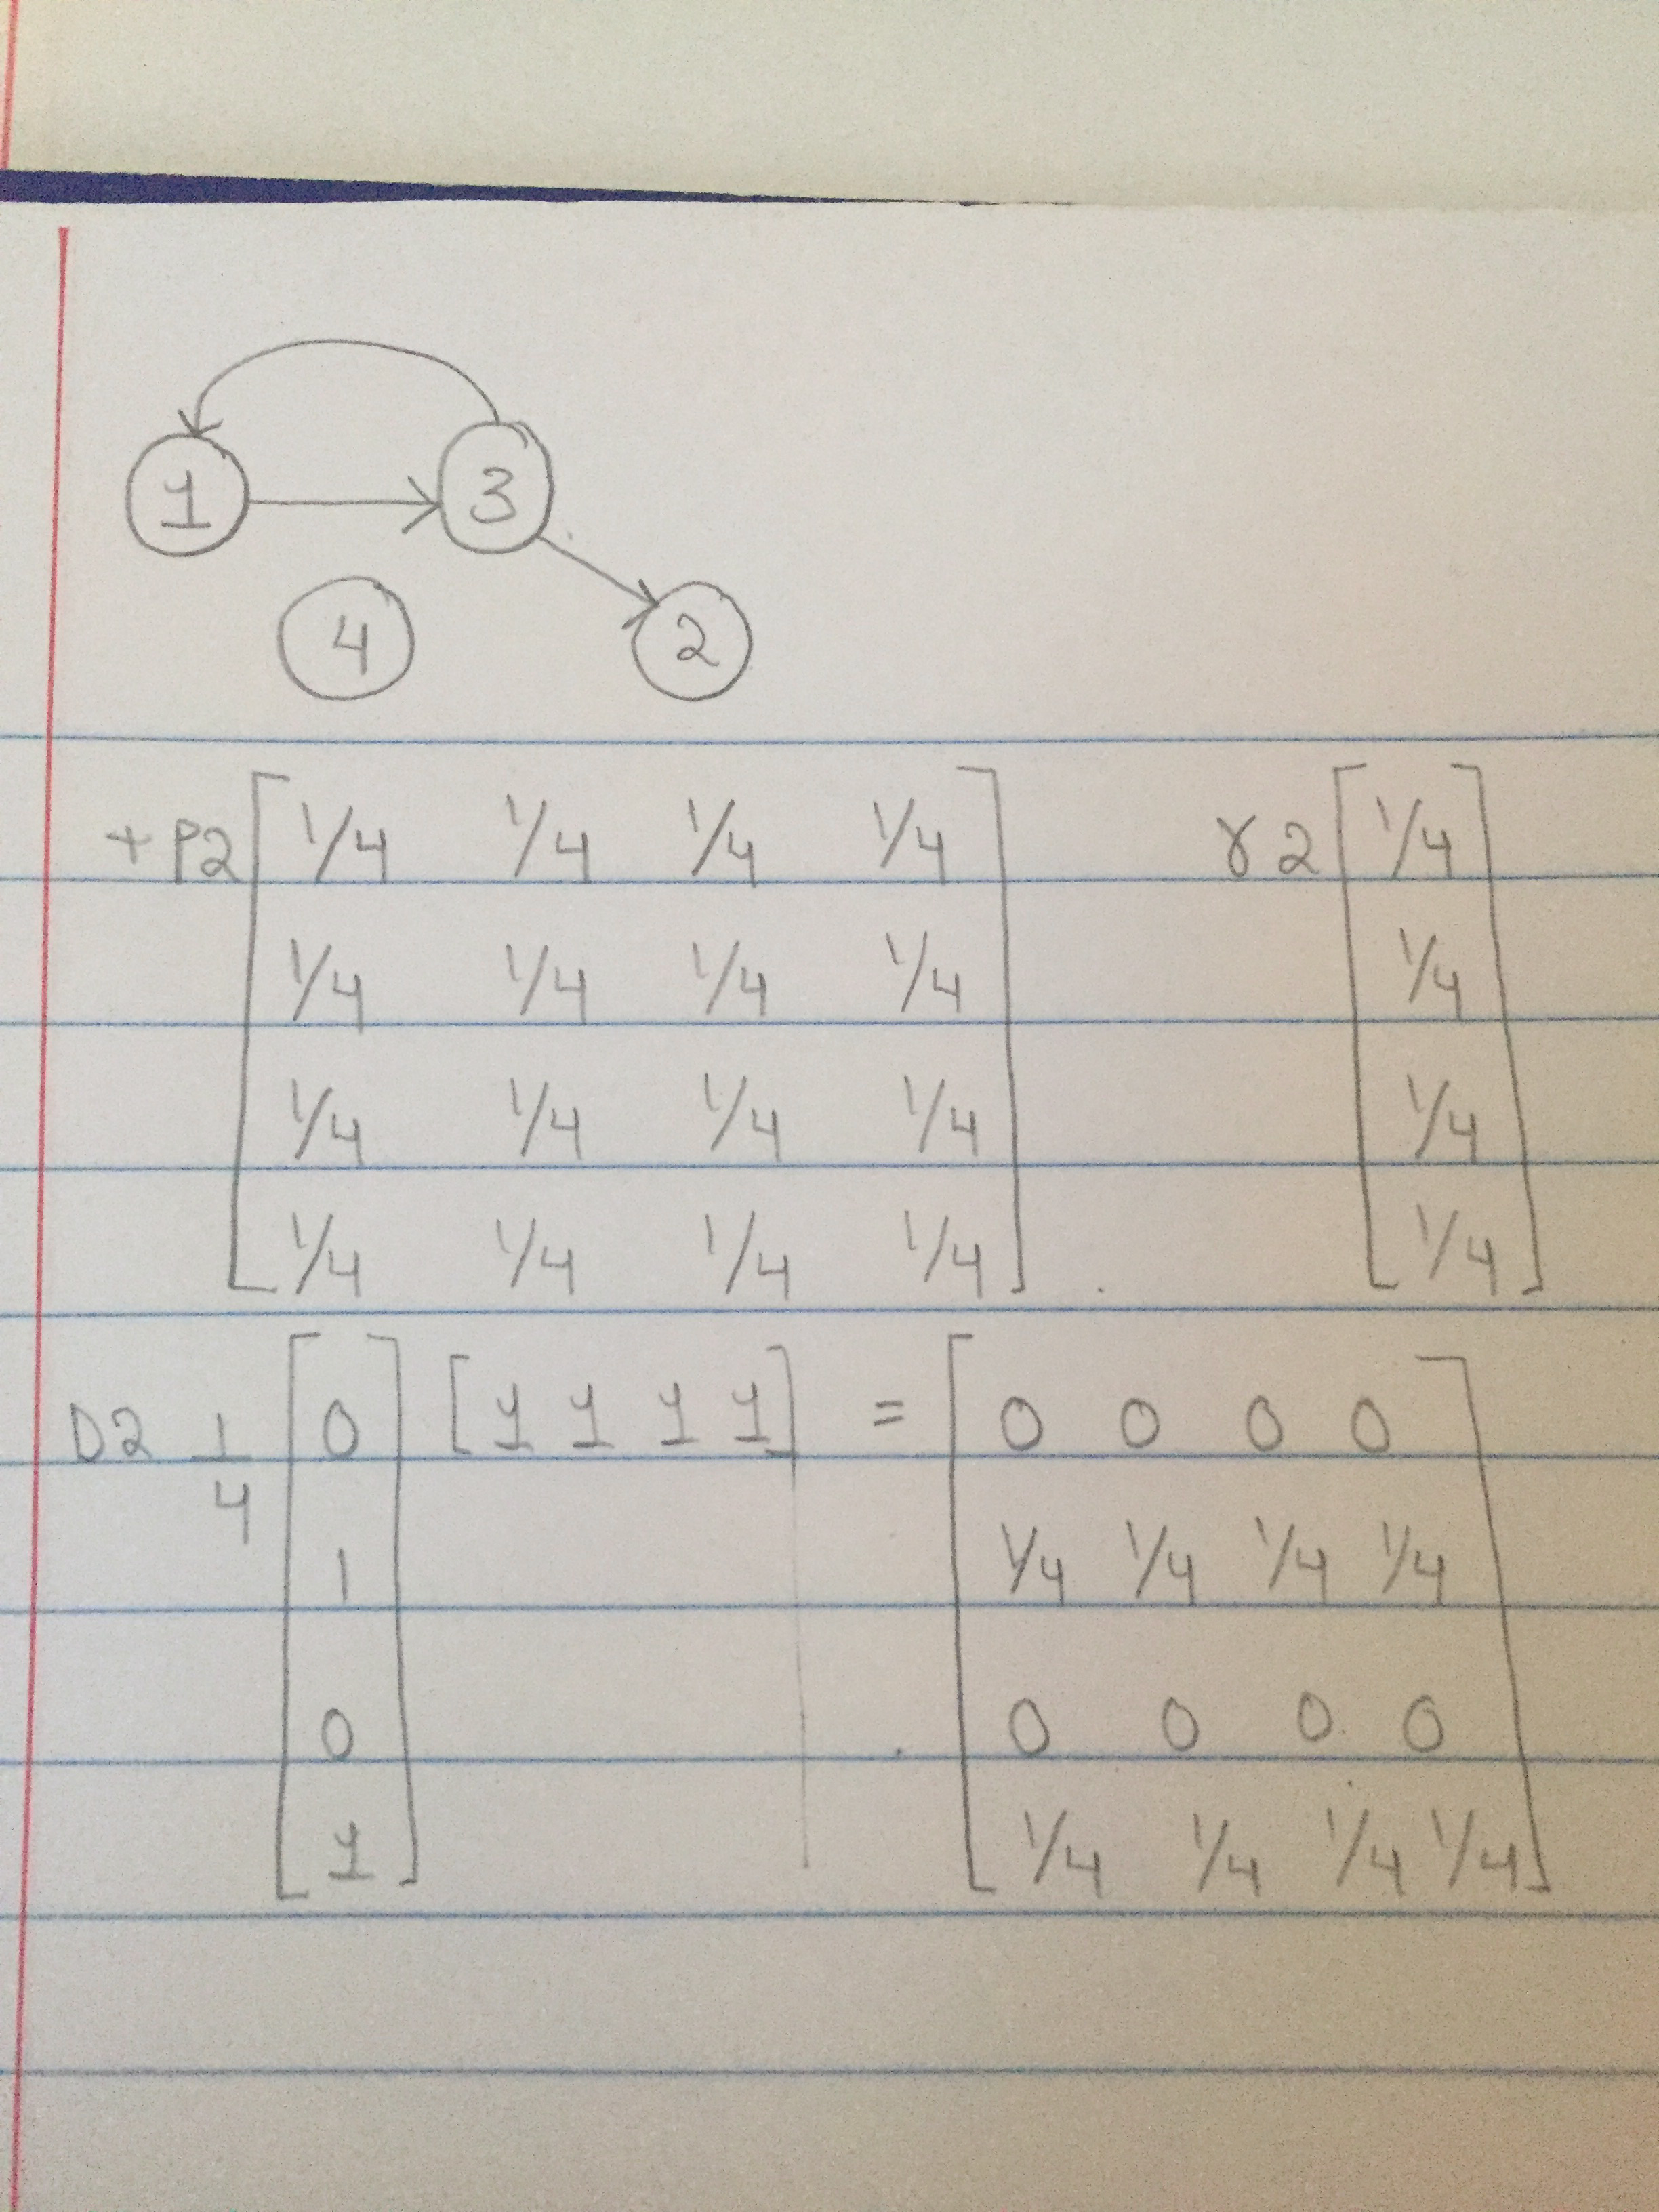 1 3
4 2
+P2 [ 1/4 1/4 1/4 1/4 ] γ2 [ 1/4 ]
1/4 1/4 1/4 1/4 1/4
1/4 1/4 1/4 1/4 1/4
1/4 1/4 1/4 1/4 1/4
D2 1/4 [ 0 ] [ 1 1 1 1 ] = [ 0 0 0 0 ]
1 1/4 1/4 1/4 1/4
0 0 0 0 0
1 1/4 1/4 1/4 1/4